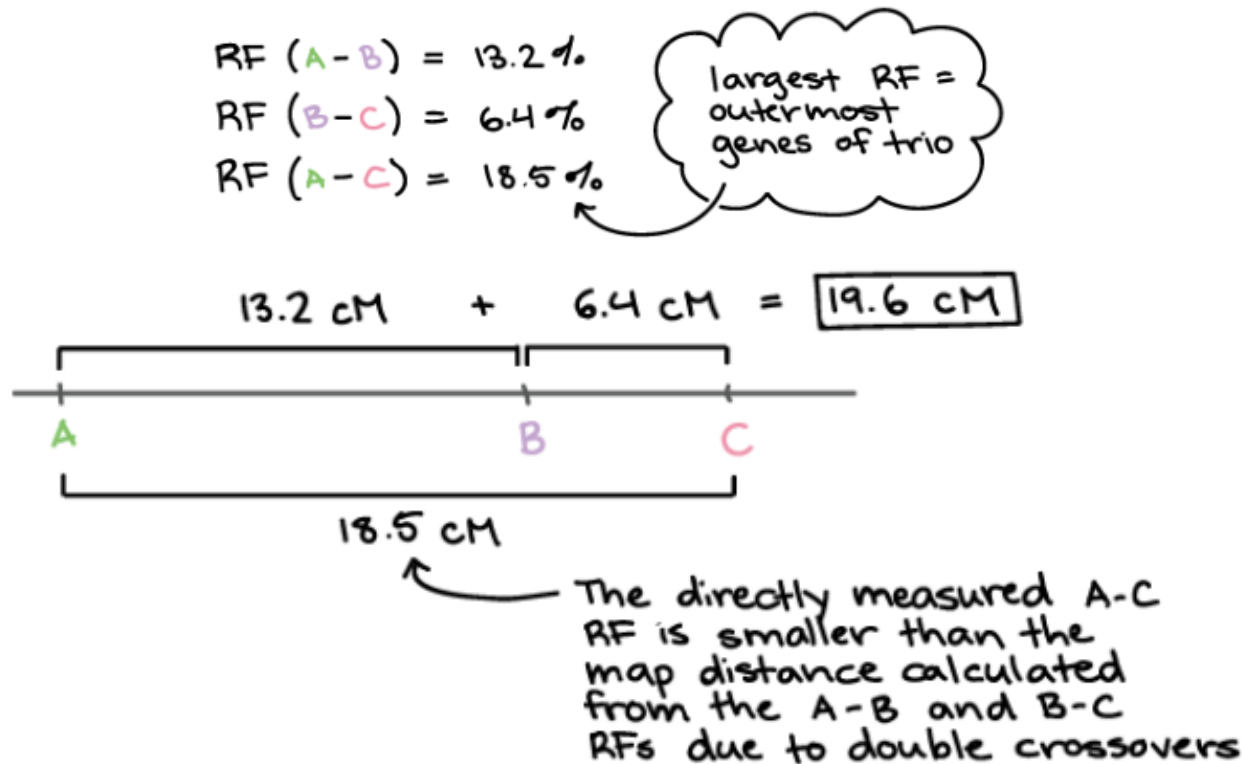 RF (A-B) = 13.2%
RF (B-C) = 6.4%
RF (A-C) = 18.5%
largest RF =
outermost
genes of trio
13.2 cM + 6.4 cM = 19.6 cM
A B C
18.5 cM
The directly measured A-C
RF is smaller than the
map distance calculated
from the A-B and B-C
RFs due to double crossovers